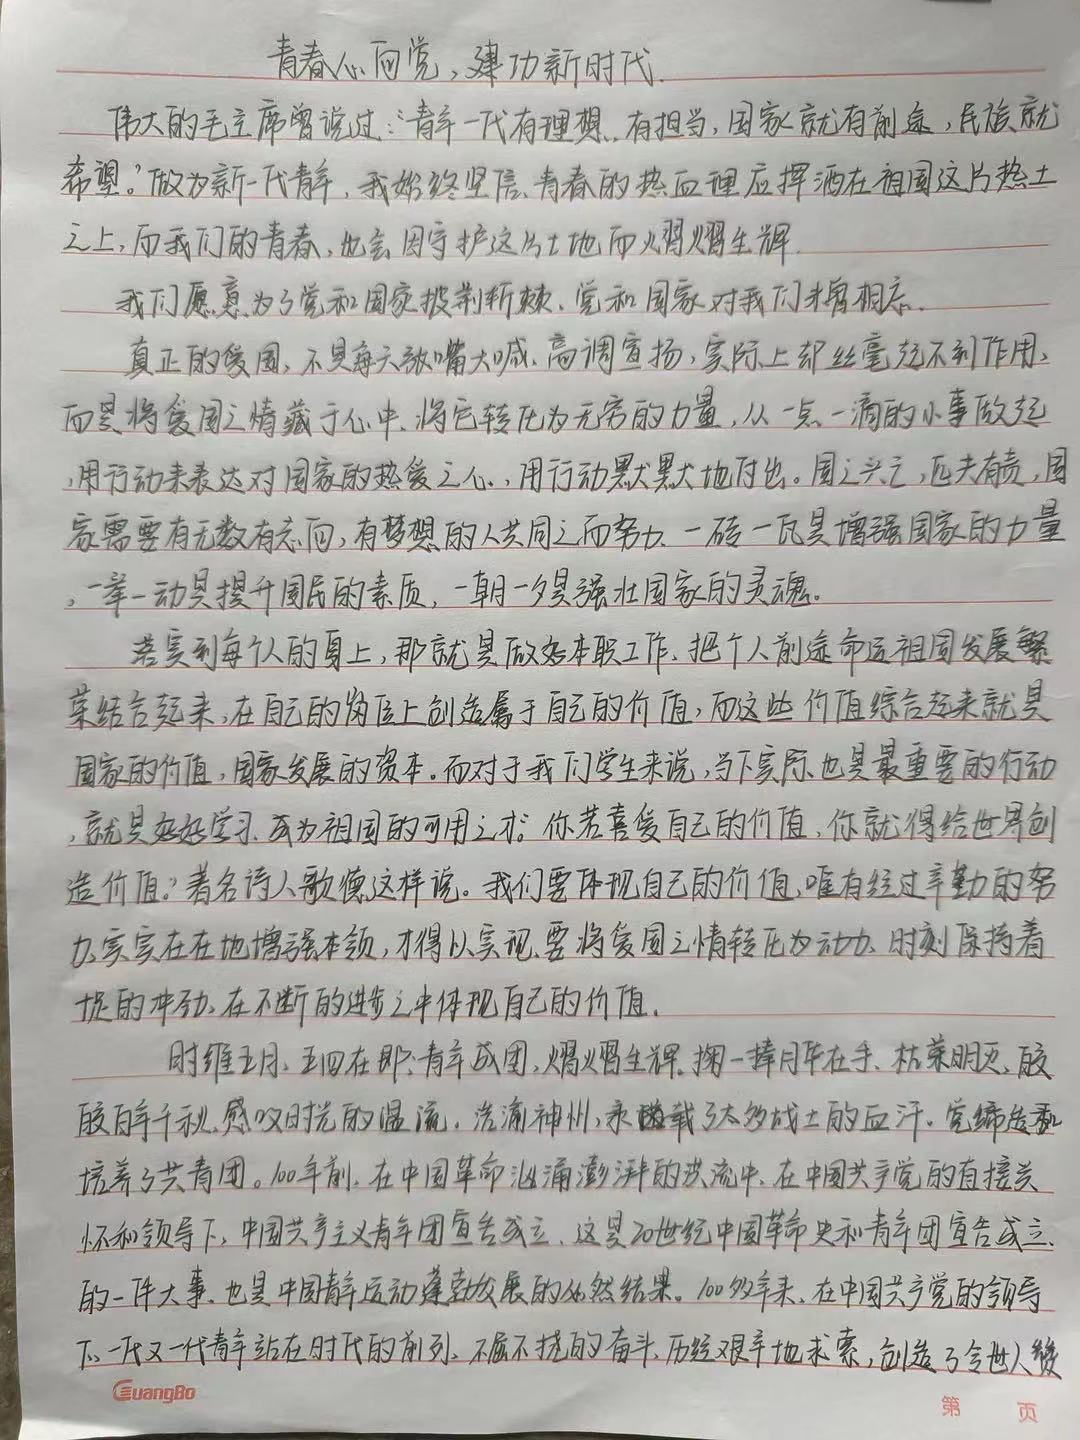 青春心向党，建功新时代.
伟大的毛主席曾说过:“青年一代有理想、有担当,国家就有前途,民族就
希望。”做为新一代青年,我始终坚信、青春的热血理应挥洒在祖国这片热土
之上,而我们的青春,也会因守护这片土地而熠熠生辉.
我们愿意为了党和国家披荆斩棘、党和国家对我们未曾相忘.
真正的爱国,不是每天张嘴大喊、高调宣扬,实际上却丝毫起不到作用,
而是将爱国之情藏于心中、将它转化为无穷的力量,从一点一滴的小事做起
,用行动来表达对国家的热爱之心,用行动默默地付出。国之兴亡,匹夫有责,国
家需要有无数有志向,有梦想的人共同之而努力、一砖一瓦是增强国家的力量
,一举一动是提升国民的素质,一朝一夕是强壮国家的灵魂。
落实到每个人的身上,那就是做好本职工作、把个人前途命运祖国发展繁
荣结合起来,在自己的岗位上创造属于自己的价值,而这些价值综合起来就是
国家的价值,国家发展的资本。而对于我们学生来说,当下实际、也是最重要的行动
,就是好好学习、成为祖国的可用之才。你若喜爱自己的价值,你就得给世界创
造价值。”著名诗人歌德这样说。我们要体现自己的价值,唯有经过辛勤的努
力、实实在在地增强本领,才得以实现、要将爱国之情转化为动力、时刻保持着
提的冲劲、在不断的进步之中体现自己的价值.
时维五月、五四在即、青年成团,熠熠生辉.掬一捧月华在手、枯荣明灭,皎
皎百年千秋、感叹时光的温流.浩涌神州,承载了太多战士的血汗.党缔造和
培养了共青团。100年前、在中国革命汹涌澎湃的洪流中、在中国共产党的直接关
怀和领导下,中国共产主义青年团宣告成立、这是20世纪中国革命史和青年团宣告成立、
的一件大事、也是中国青年运动蓬勃发展的必然结果。100多年来、在中国共产党的领导
下、一代又一代青年站在时代的前列、不屈不挠的奋斗、历经艰辛地求索,创造了令世人
GuangBo
第 页